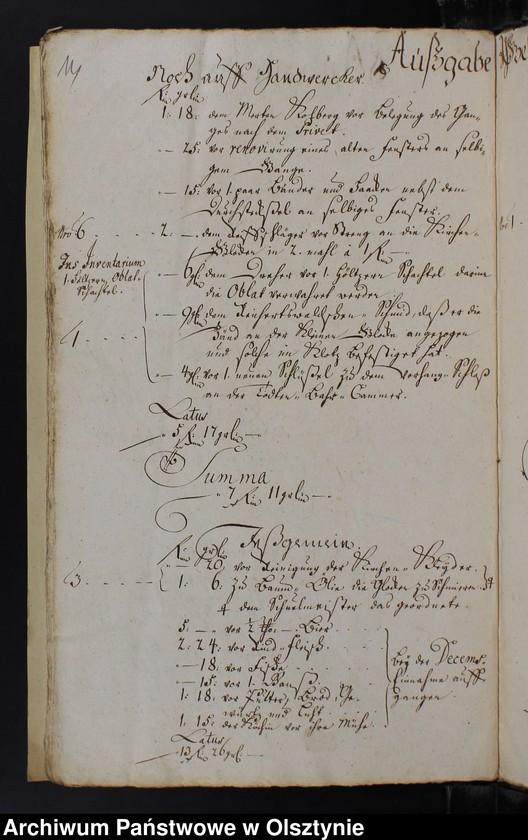 14
Ausgabe
Noch auff Handwercker
fl: grl:
1: 18: dem Merten Koßberg vor Belegung des Gan-
ges nach dem Privet.
— 25: vor renovirung eines alten Fensters an selbi-
gem Gange.
— 15: vor 1. paar Bänder und Haacken nebst dem
an selbiges Fenster.
No: 6. 2: — dem vor Streng an die Kirchen-
Glocken in 2. mahl à 1 fl —
Ins Inventarium
1. höltzern Oblat-
Schachtel.
— 6 dem Dreher vor 1. höltzern Schachtel darin
die Oblat verwahret werden
— 9 dem Reichertswaldschen Schmid, daß er die
Bänd an der kleinen Glocke angezogen
und solche im Klotz befestiget hat.
— 4 vor 1. neuen Schlüßel zu dem Vorhang-Schloß
an der Todten-Bahr-Cammer.
Latus
5 fl: 17 grl: —
Summa
7 fl: 11 grl: —
Insgemein.
fl: grl:
— 20: vor Reinigung der Kirchen-
1: 6: zu Baum-Olie die Glocken zu Schmieren
dem Schulmeister das geordnete.
5: — vor ½ Bier
2: 24: vor Rind-Fleisch
— 18: vor Fische
— 15: vor 1. Ganß
1: 18: vor Butter, Brod, Ge-
würtz und Licht
1: 15: der Köchin vor ihre Mühe.
bey der Decems-
Einnahme auff-
gangen
Latus
13 fl: 26 grl: —
Archiwum Państwowe w Olsztynie